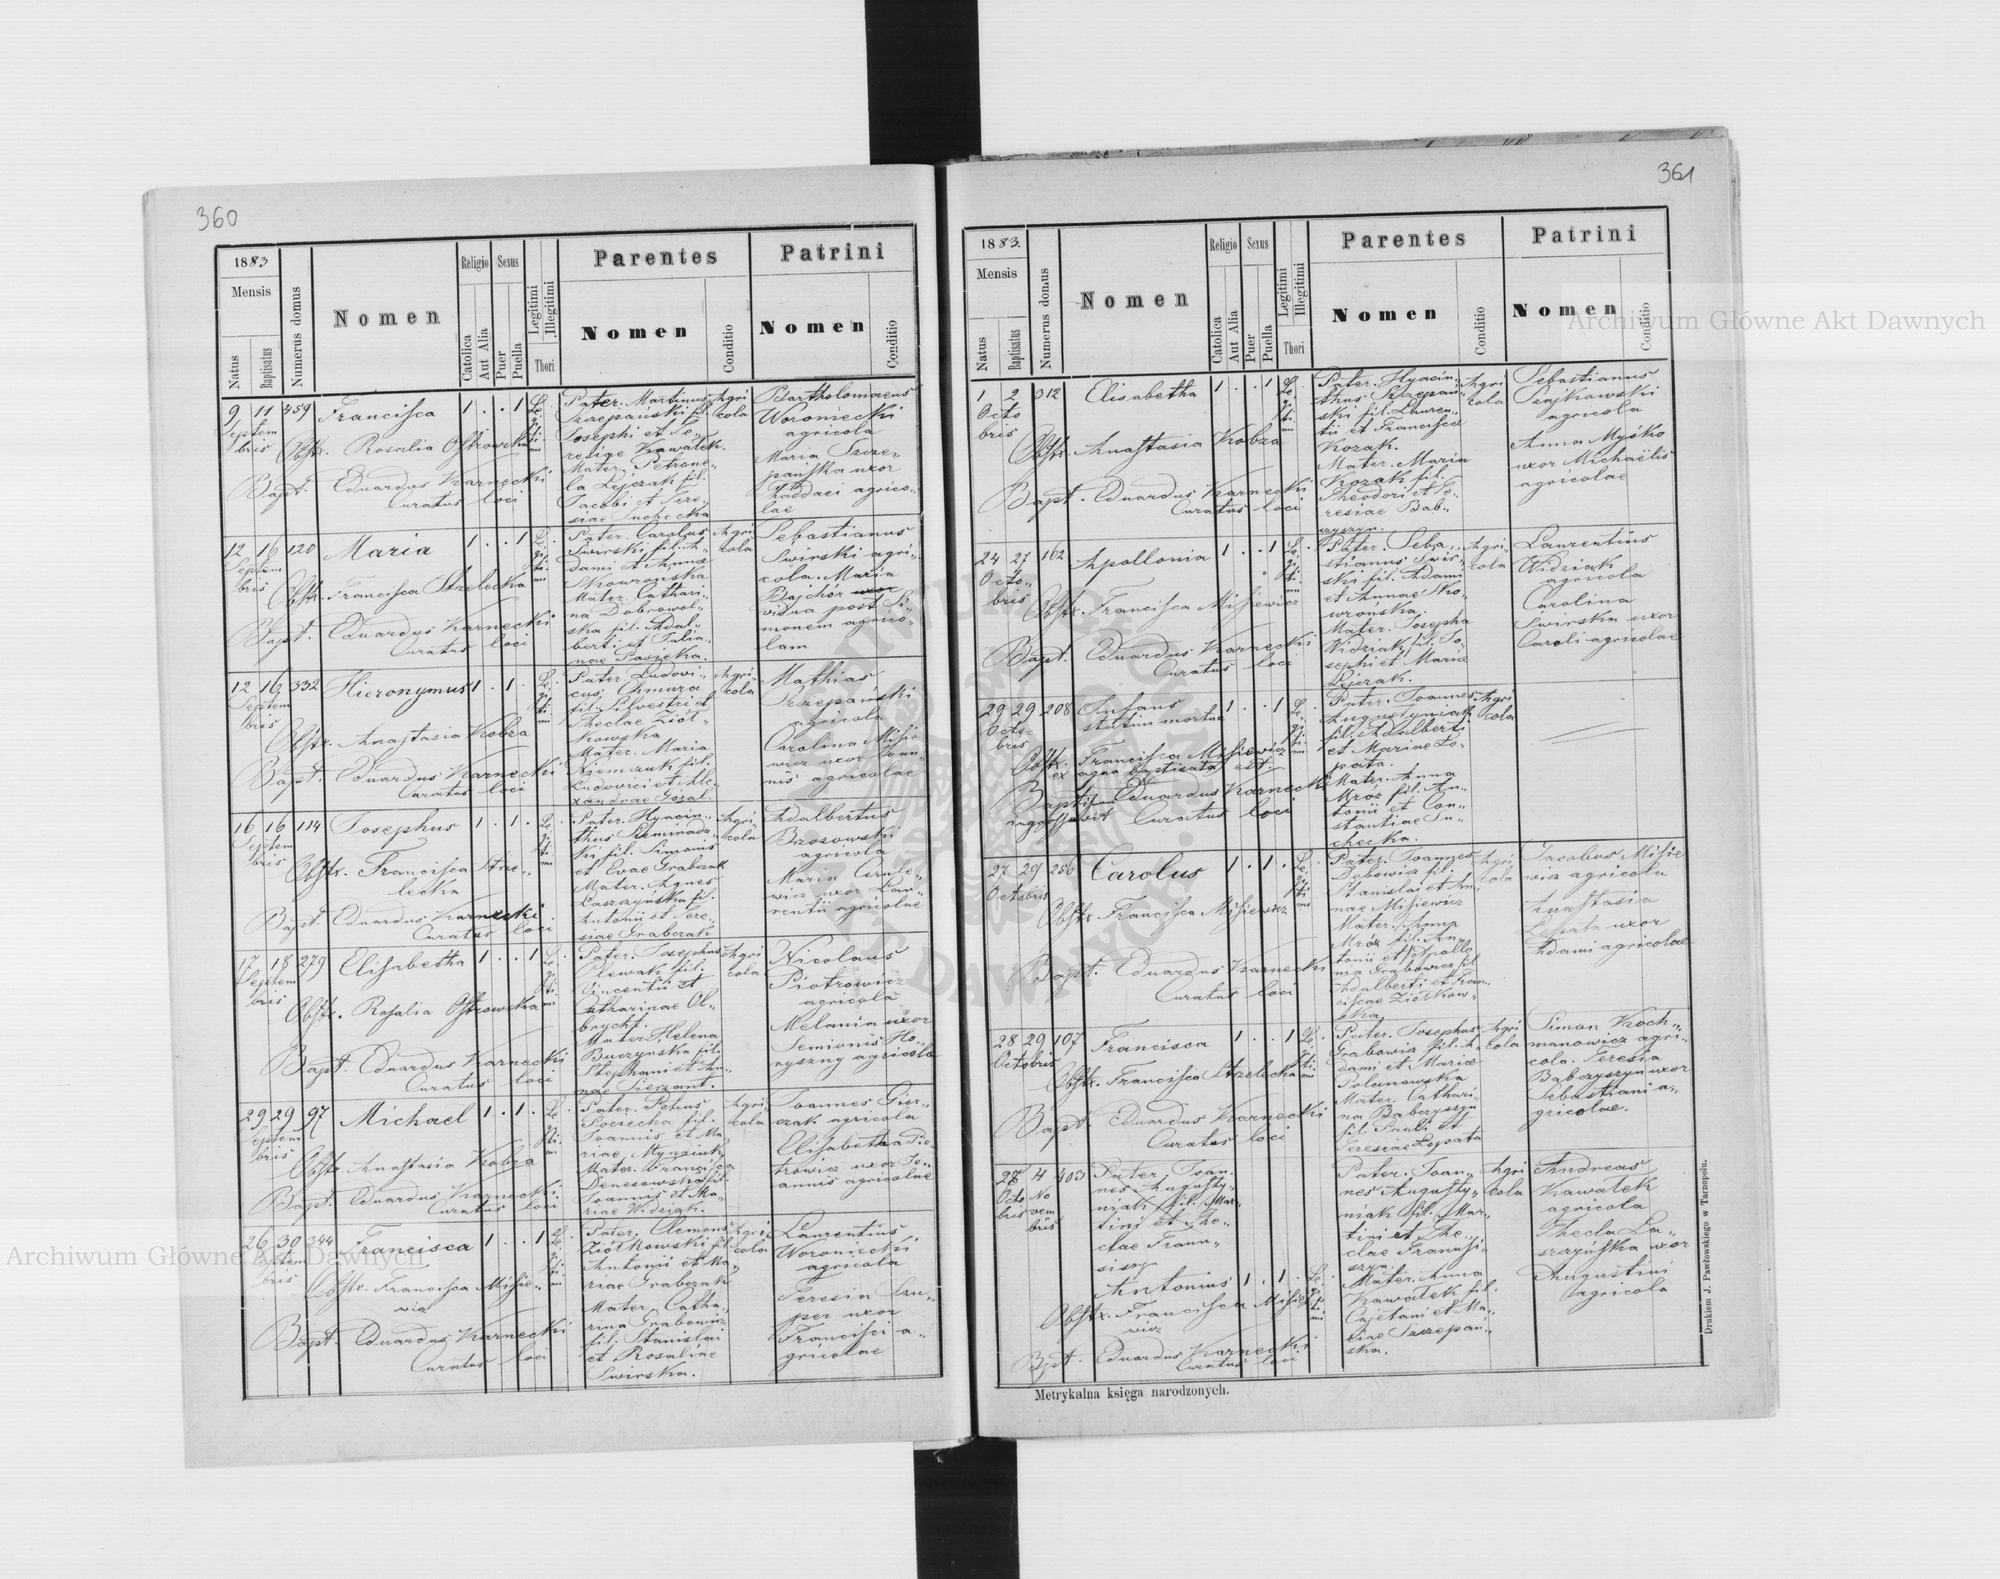 360
1883
Mensis
Natus
Baptisatus
Numerus domus
Nomen
Religio
Catholica
Aut Alia
Sexus
Puer
Puella
Legitimi
Illegitimi
Thori
Parentes
Nomen
Conditio
Patrini
Nomen
Conditio
9 11 459 Francisca 1 . . 1
Septem
bris
Obstr. Rosalia Ostrowska
Bapt. Eduardus Karnecki
Curatus loci
Pater. Martinus
Szczepański fil.
Josephi et Te„
resiae Kawałek.
Mater. Petrone„
la Lejczak fil.
Jacobi et Tere„
siae Suchecka
Agri
cola
Bartholomaeus
Woroniecki
agricola
Maria Szcze„
pańska uxor
Thaddaei agrico„
lae
12 16 120 Maria 1 . . 1
Septem
bris
Obstr. Francisca Strzelecka
Bapt. Eduardus Karnecki
Curatus loci
Pater. Carolus
Swirski fil. A„
dami et Annae
Skowrońska
Mater. Cathari„
na Dobrowol„
ska fil. Adal„
berti et Julia„
nae Pasieka.
Agri
cola
Sebastianus
Swirski agri„
cola. Maria
Bajchór uxor
vidua post Si„
monem agrico„
lam
12 16 332 Hieronymus 1 . 1 .
Septem
bris
Obstr. Anastasia Kobza
Bapt. Eduardus Karnecki
Curatus loci
Pater. Ludovi„
cus Chmura
fil. Silvestri et
Theclae Ziół„
kowska
Mater. Maria
Niemczuk fil.
Ludovici et Ale„
xandrae Gózal.
Agri
cola
Mathias
Szczepański
agricola
Carolina Misie„
wicz uxor Joan„
nis agricolae
16 16 114 Josephus 1 . 1 .
Septem
bris
Obstr. Francisca Strze„
lecka
Bapt. Eduardus Karnecki
Curatus loci
Pater. Hyacin„
thus
ki fil. Simonis
et Evae Grabczak
Mater. Agnes
Laszczyńska fil.
Antonii et Tere„
siae Grabczak
Agri
cola
Adalbertus
Brzozowski
agricola
Maria
wicz uxor Lau„
rentii agricolae
17 18 279 Elisabetha 1 . . 1
Septem
bris
Obstr. Rosalia Ostrowska
Bapt. Eduardus Karnecki
Curatus loci
Pater. Josephus
Plewak fil.
Vincentii et
Catharinae Ol„
brycht.
Mater. Helena
Buczynska fil.
Stephani et An„
nae Sierzant.
Agri
cola
Nicolaus
Piotrowicz
agricola
Melania uxor
Semionis Ho„
ryszny agricola
29 29 97 Michael 1 . 1 .
Septem
bris
Obstr. Anastasia Kobza
Bapt. Eduardus Karnecki
Curatus loci
Pater. Petrus
Pociecha fil.
Joannis et Ma„
riae
Mater. Francisca
Denesowska fil.
Joannis et Ma„
riae Widziak.
Agri
cola
Joannes Gier„
czak agricola
Elisabetha Pio„
trowicz uxor Jo„
annis agricolae
26 30 244 Francisca 1 . . 1
Septem
bris
Obstr. Francisca Misie„
wicz
Bapt. Eduardus Karnecki
Curatus loci
Pater. Clemens
Ziółkowski fil.
Antonii et Ma„
riae Grabczak
Mater. Catha„
rina Grabowicz
fil. Stanislai
et Rosaliae
Swirska.
Agri
cola
Laurentius
Woroniecki
agricola
Teresia Szu„
per uxor
Francisci a„
gricolae
361
1883.
Mensis
Natus
Baptisatus
Numerus domus
Nomen
Religio
Catholica
Aut Alia
Sexus
Puer
Puella
Legitimi
Illegitimi
Thori
Parentes
Nomen
Conditio
Patrini
Nomen
Conditio
1 2 312 Elisabetha 1 . . 1
Octo
bris
Obstr. Anastasia Kobza
Bapt. Eduardus Karnecki
Curatus loci
Pater. Hyacin„
thus Szczepań„
ski fil. Lauren„
tii et Francisca
Kozak.
Mater. Maria
Kozak fil.
Theodori et Te„
resiae Bab„
czyszyn.
Agri
cola
Sebastianus
Pajkowski
agricola
Anna Myśko
uxor Michaëlis
agricolae
24 27 162 Apollonia 1 . . 1
Octo„
bris
Obstr. Francisca Misiewicz
Bapt. Eduardus Karnecki
Curatus loci
Pater. Seba„
stianus Swir„
ski fil. Adami
et Annae Sko„
wrońska.
Mater. Josepha
Widziak fil. Jo„
sephi et Mariae
Lejczak.
Agri„
cola
Laurentius
Widziak
agricola
Carolina
Swirska uxor
Caroli agricolae
29 29 208 Infans 1 . . 1
Octo„
bris
statim mortua
Obstr. Francisca Misiewicz
ex aqua baptisata est.
Baptismum Eduardus Karnecki
Curatus loci
Pater. Joannes
Augustyniak
fil. Adalberti
et Mariae Ło„
pata.
Mater. Anna
Mróz fil. An„
tonii et Con„
stantiae Su„
checka.
Agri
cola
27 29 256 Carolus 1 . 1 .
Octobris
Obstr. Francisca Misiewicz
Bapt. Eduardus Karnecki
Curatus loci
Pater. Joannes
Dębowicz fil.
Stanislai et An„
nae Misiewicz
Mater. Anna
Mróz fil. An„
tonii et Apollo„
nia Grabowicz fil
Adalberti et Fran„
ciscae Ziółkow„
ska
Agri
cola
Jacobus Misie
wicz agricola
Anastasia
Łopata uxor
Adami agricolae
28 29 107 Francisca 1 . . 1
Octobris
Obstr. Francisca Strzelecka
Bapt. Eduardus Karnecki
Curatus loci
Pater. Josephus
Grabowicz fil. A„
dami et Mariae
Polanowska
Mater. Cathari„
na Babczyszyn
fil. Pauli et
Teresiae Łopata
Agri
cola
Simon Koch„
manowicz agri„
cola. Teresia
Babczyszyn uxor
Sebastiani a„
gricolae.
28 4 403 Pater. Joan„
Octo No
bris vem
bris
nes Augusty„
niak fil. Mar„
tini et The„
clae Fran„
siszy
Antonius 1 . 1 .
Obstr. Francisca Misie
wicz
Bpt. Eduardus Karnecki
Curatus loci
Pater. Joan„
nes Augusty„
niak fil. Mar„
tini et The„
clae Fransi„
szyn.
Mater. Anna
Kawałek fil.
Cajetani et Ma„
riae Szczepań„
ska.
Agri
cola
Andreas
Kawałek
agricola
Thecla La„
szczyńska uxor
Augustini
agricola
Metrykalna księga narodzonych.
Drukiem J. Pawłowskiego w Tarnopolu.
Archiwum Główne Akt Dawnych
Archiwum Główne Akt Dawnych